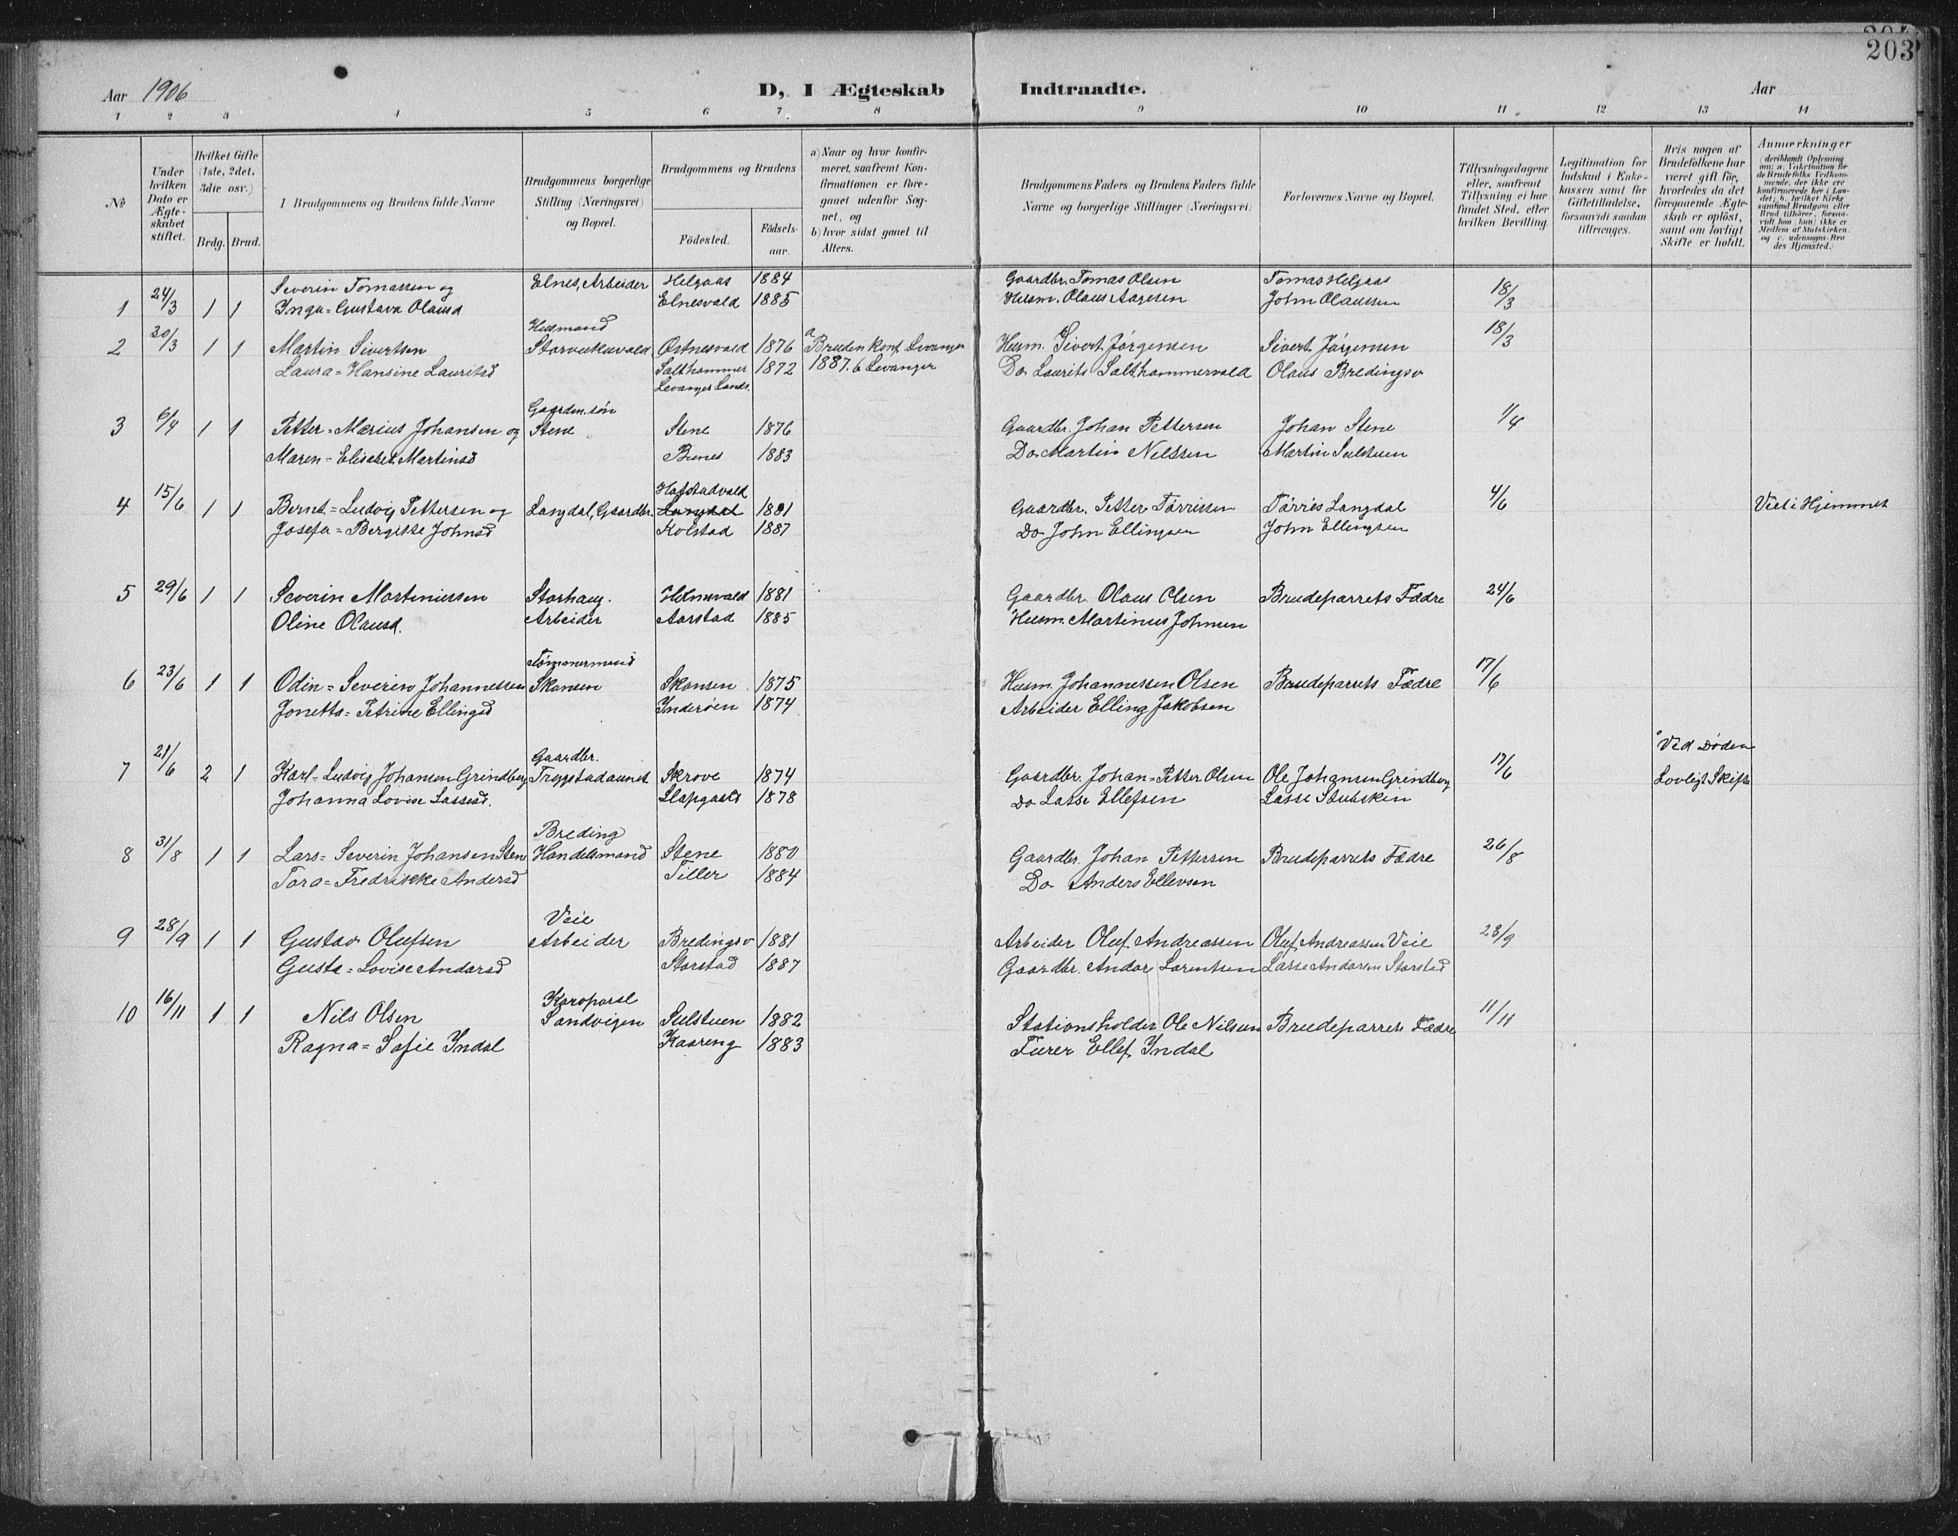 203
Aar 1906 D, I Ægteskab Indtraadte. Aar
1 2 3 4 5 6 7 8 9 10 11 12 13 14
No
Under hvilken Dato er Ægteskabet stiftet.
Hvilket Gifte (1ste, 2det, 3die osv.)
Brdg. Brud.
Brudgommens og Brudens fulde Navne
Brudgommens borgerlige Stilling (Næringsvei) og Bopæl.
Brudgommens og Brudens
Födested. Födselsaar.
a) Naar og hvor konfirmeret, saafremt Konfirmationen er foregaaet udenfor Sognet, og
b) hvor sidst gaaet til Alters.
Brudgommens Faders og Brudens Faders fulde Navne og borgerlige Stillinger (Næringsvei)
Forlovernes Navne og Bopæl.
Tillysningsdagene eller, saafremt Tillysning ei har fundet Sted, efter hvilken Bevilling.
Legitimation for Indskud i Enkekassen samt for Giftetilladelse, forsaavidt saadan tiltrænges.
Hvis nogen af Brudefolkene har været gift för, hvorledes da det foregaaende Ægteskab er oplöst, samt om lovligt Skifte er holdt.
Anmærkninger
Severin Tomassen og Elnes, Arbeider Helgaas 1884 Gaardbr. Tomas Olsen Tomas Helgaas
1 24/3 1 1 Inga=Gustava Olausd Elnesvald 1885 Husm. Olaus Aagesen John Olaussen 18/3
Husmand
2 30/3 1 1 Martin Sivertsen Østnesvald 1876 a Bruden konf. Levanger Husm. Sivert Jørgensen Sivert Jørgensen 18/3
Laura=Hansine Lauritsd Salthammer 1872 1887. b Levanger Do Laurits Salthammervald Olaus Bredingsv
Levanger Lands.
Gaardm. søn
3 6/4 1 1 Petter=Marius Johansen og Stene Stene 1876 Gaardbr. Johan Pettersen Johan Stene 1/4
Maren=Elisabet Martinsd 1883 Do Martin Nilssen Martin Sulstuen
Hofstadvald
4 15/6 1 1 Bernt=Ludvig Pettersen og Langdal, Gaardbr. Langdal 1881 Gaardbr. Petter Tørrissen Tørris Langdal 4/6 Viet i Hjemmet
Josefa=Bergitte Johnsd Kolstad 1887 Do John Ellingsen John Ellingsen
5 29/6 1 1 Severin Martinussen Storhaug. 1881 Gaardbr. Olaus Olsen Brudeparrets Fædre 24/6
Oline Olausd. Arbeider Aarstad 1885 Husm. Martinus Johnsen
Tømmermand
6 23/6 1 1 Odin=Severin Johannessen Skansen Skansen 1875 Husm. Johannessen Olsen Brudeparrets Fædre 17/6
Jonetta=Petrine Ellingsd Inderøen 1874 Arbeider Elling Jakobsen
Gaardbr. Ved Døden
7 21/6 2 1 Karl=Ludvig Johansen Grindberg Trøgstadaunet Skrove 1874 Gaardbr. Johan=Petter Olsen Ole Johansen Grindberg 17/6 Lovligt Skifte
Johanna Lovise Lassesd. Slapgaard 1878 Do Lasse Ellefsen Lasse Stubskin
Breding
8 31/8 1 1 Lars=Severin Johansen Stene Handelsmand Stene 1880 Gaardbr. Johan Pettersen Brudeparrets Fædre 26/8
Tora=Fredrikke Andersd Tiller 1884 Do Anders Ellevsen
Veie
9 28/9 1 1 Gustav Olufsen Arbeider Bredingsv 1881 Arbeider Oluf Andreassen Oluf Andreassen Veie 23/9
Gusta=Lovise Andorsd Storstad 1887 Gaardbr. Andor Lorentsen Lasse Andorsen Storstad
10 16/11 1 1 Nils Olsen Sandvigen Sulstuen 1882 Stationsholder Ole Nilsen Brudeparrets Fædre 11/11
Ragna=Sofie Indal Kaareng 1883 Furer Ellef Indal